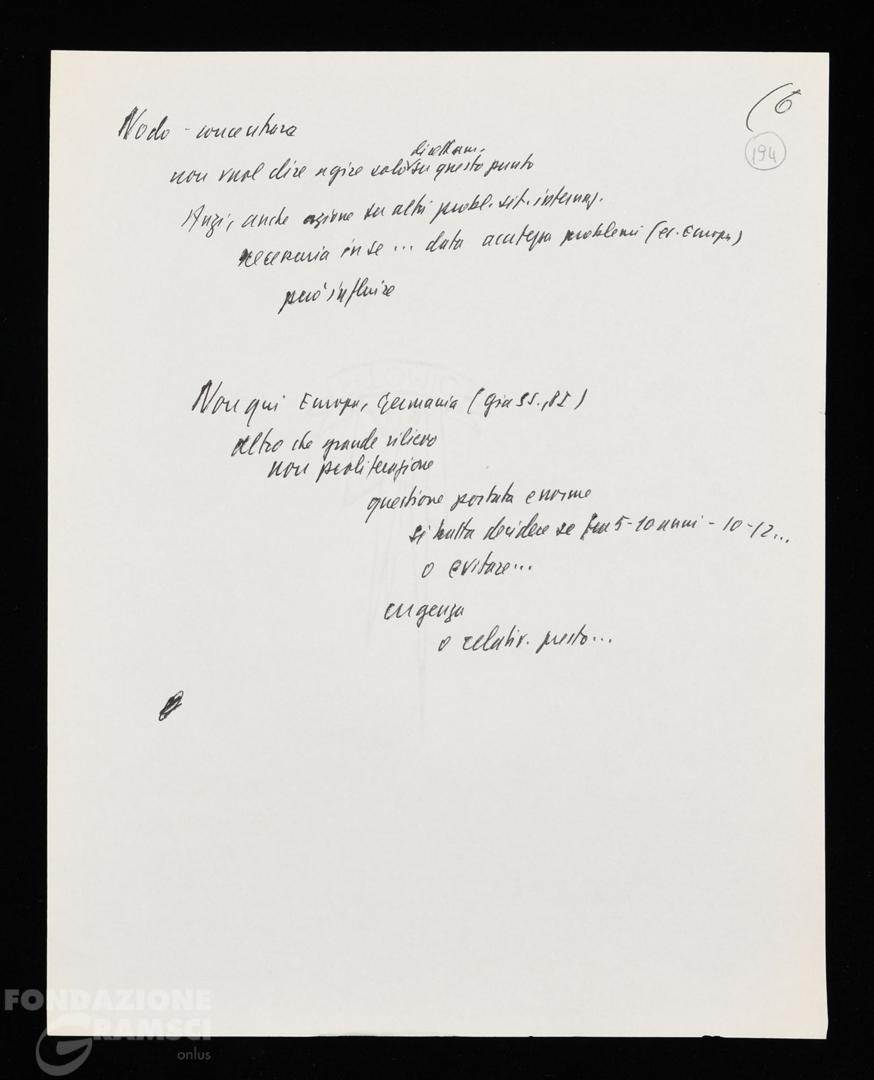 (6
194
Nodo - concentrare
direttam.
non vuol dire agire solo su questo punto
Anzi, anche azione su altri probl. sit. internaz.
necessaria in se ... data acutezza problemi (es. Europa)
può influire
Non qui Europa, Germania (già SS.,
altro che grande rilievo
non proliferazione
questione portata enorme
si tratta decidere se fra 5-10 anni - 10-12...
o evitare...
urgenza
o relativ. presto...
FONDAZIONE
GRAMSCI
onlus